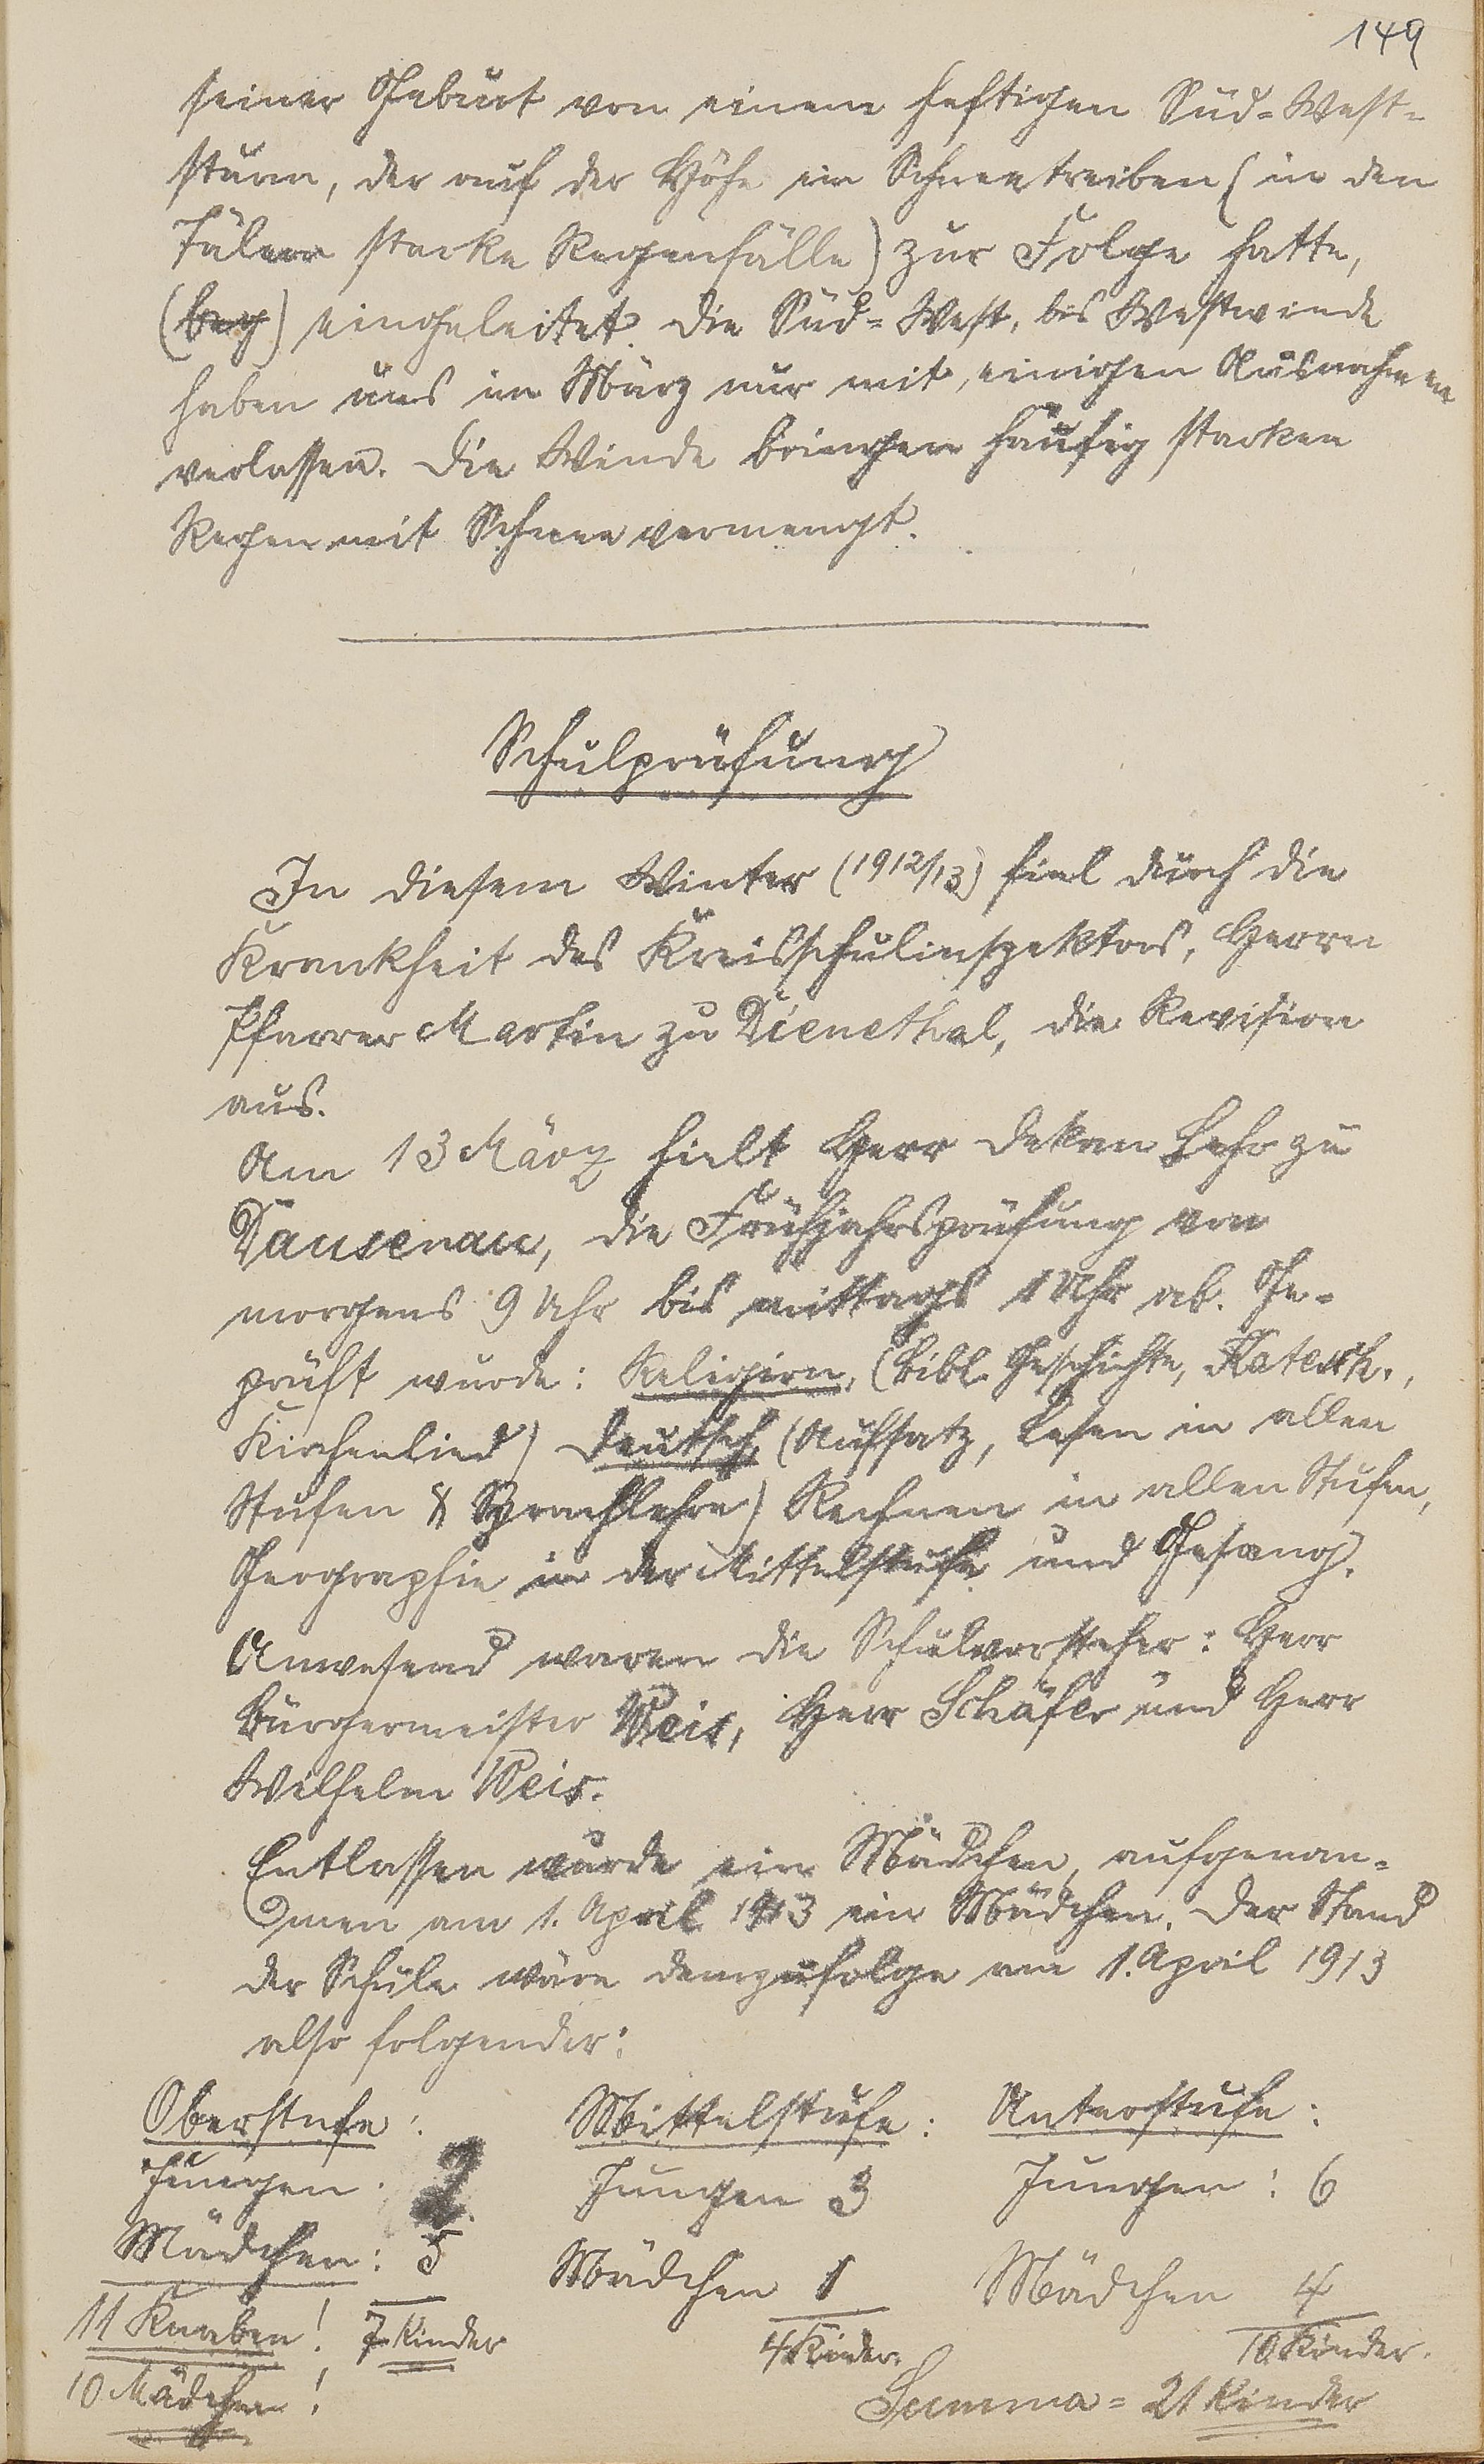 149
seiner Geburt von einem heftigen Süd-West-
sturm, der auf der Höhe ein Schneetreiben (in den
Tälern starke Regenfälle) zur Folge hatte,
(beg) eingeleitet. Die Süd-West, bis Westwinde
haben uns im März nur mit, einigen Ausnahmen
verlassen. Die Winde bringen häufig starken
Regen mit Schnee vermengt.
Schulprüfung
In diesem Winter (1912/13) fiel durch die
Krankheit des Kreisschulinspektors, Herrn
Pfarrer Martin zu Dienethal, die Revision
aus.
Am 13 März hielt Herr Dekan Lehr zu
Dausenau, die Frühjahrsprüfung von
morgens 9 Uhr bis mittags 1 Uhr ab. Ge-
prüft wurde: Religion, (bibl. Geschichte, Katech.,
Kirchenlied) Deutsch, (Aufsatz, Lesen in allen
Stufen & Sprachlehre) Rechnen in allen Stufen,
Geographie in der Mittelstufe und Gesang.
Anwesend waren die Schulvorsteher: Herr
Bürgermeister Weis, Herr Schäfer und Herr
Wilhelm Weis.
Entlassen wurde ein Mädchen, aufgenom-
men am 1. April 1913 ein Mädchen. Der Stand
der Schule wäre demzufolge am 1. April 1913
also folgender:
Oberstufe: Mittelstufe: Unterstufe:
Jungen: 2 Jungen 3 Jungen: 6
Mädchen: 5 Mädchen 1 Mädchen 4
11 Knaben! 7 Kinder 4 Kinder. 10 Kinder.
10 Mädchen! Summa = 21 Kinder